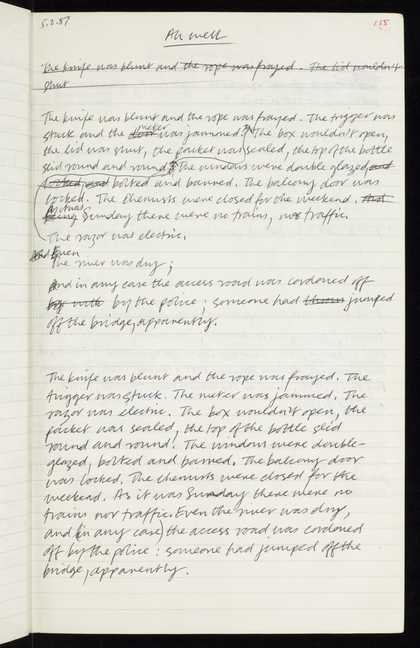 5.2.87
155
Ah well
The knife was blunt and the rope was frayed. The lid wouldn't
shut
The knife was blunt and the rope was frayed. The trigger was
stuck and the door meter was jammed. The box wouldn't open,
the lid was shut, the packet was sealed, the top of the bottle
slid round and round. The windows were double glazed and
locked, and bolted and barred. The balcony door was
locked. The chemists were closed for the weekend. And
being As it was Sunday there were no trains, nor traffic.
The razor was electric.
And Even
The river was dry;
And in any case the access road was cordoned off
by the police; someone had thrown jumped
off the bridge, apparently.
The knife was blunt and the rope was frayed. The
trigger was stuck. The meter was jammed. The
razor was electric. The box wouldn't open, the
packet was sealed, the top of the bottle slid
round and round. The windows were double-
glazed, bolted and barred. The balcony door
was locked. The chemists were closed for the
weekend. As it was Sunday there were no
trains nor traffic. Even the river was dry,
and (in any case) the access road was cordoned
off by the police: someone had jumped off the
bridge, apparently.